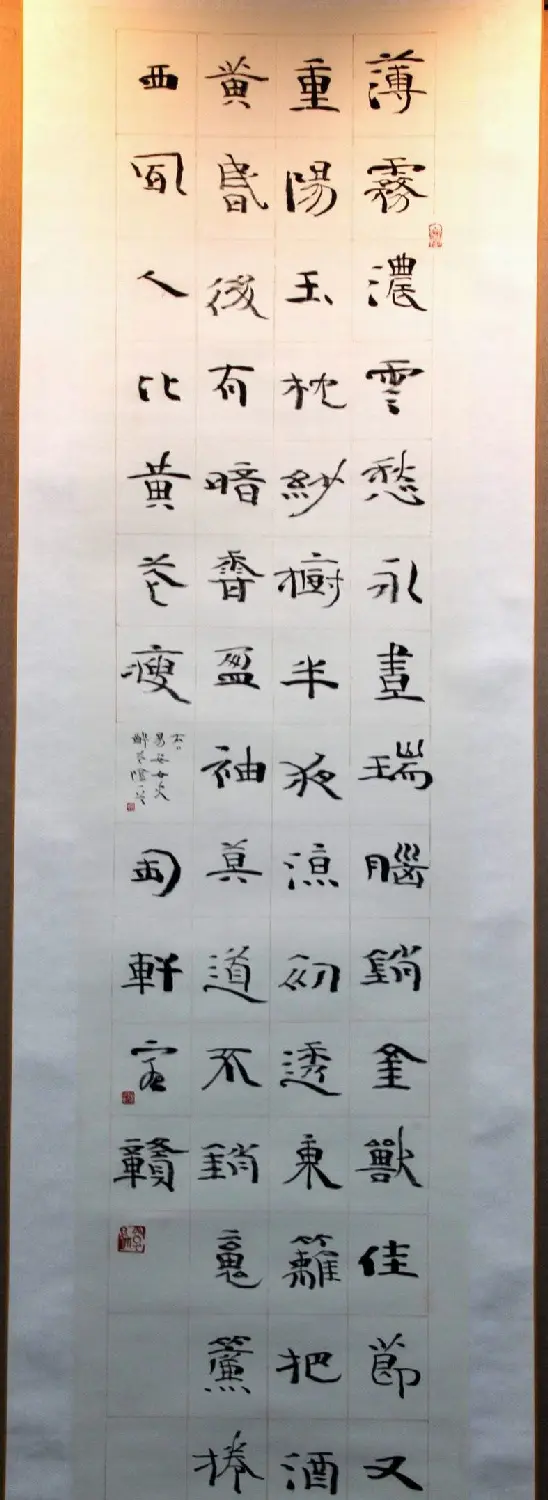 薄霧濃雲愁永晝瑞腦銷金獸佳節又
重陽玉枕紗橱半夜涼初透東籬把酒
黃昏後有暗香盈袖莫道不銷魂簾捲
西風人比黃花瘦
易安女史
醉花陰
軒
贛